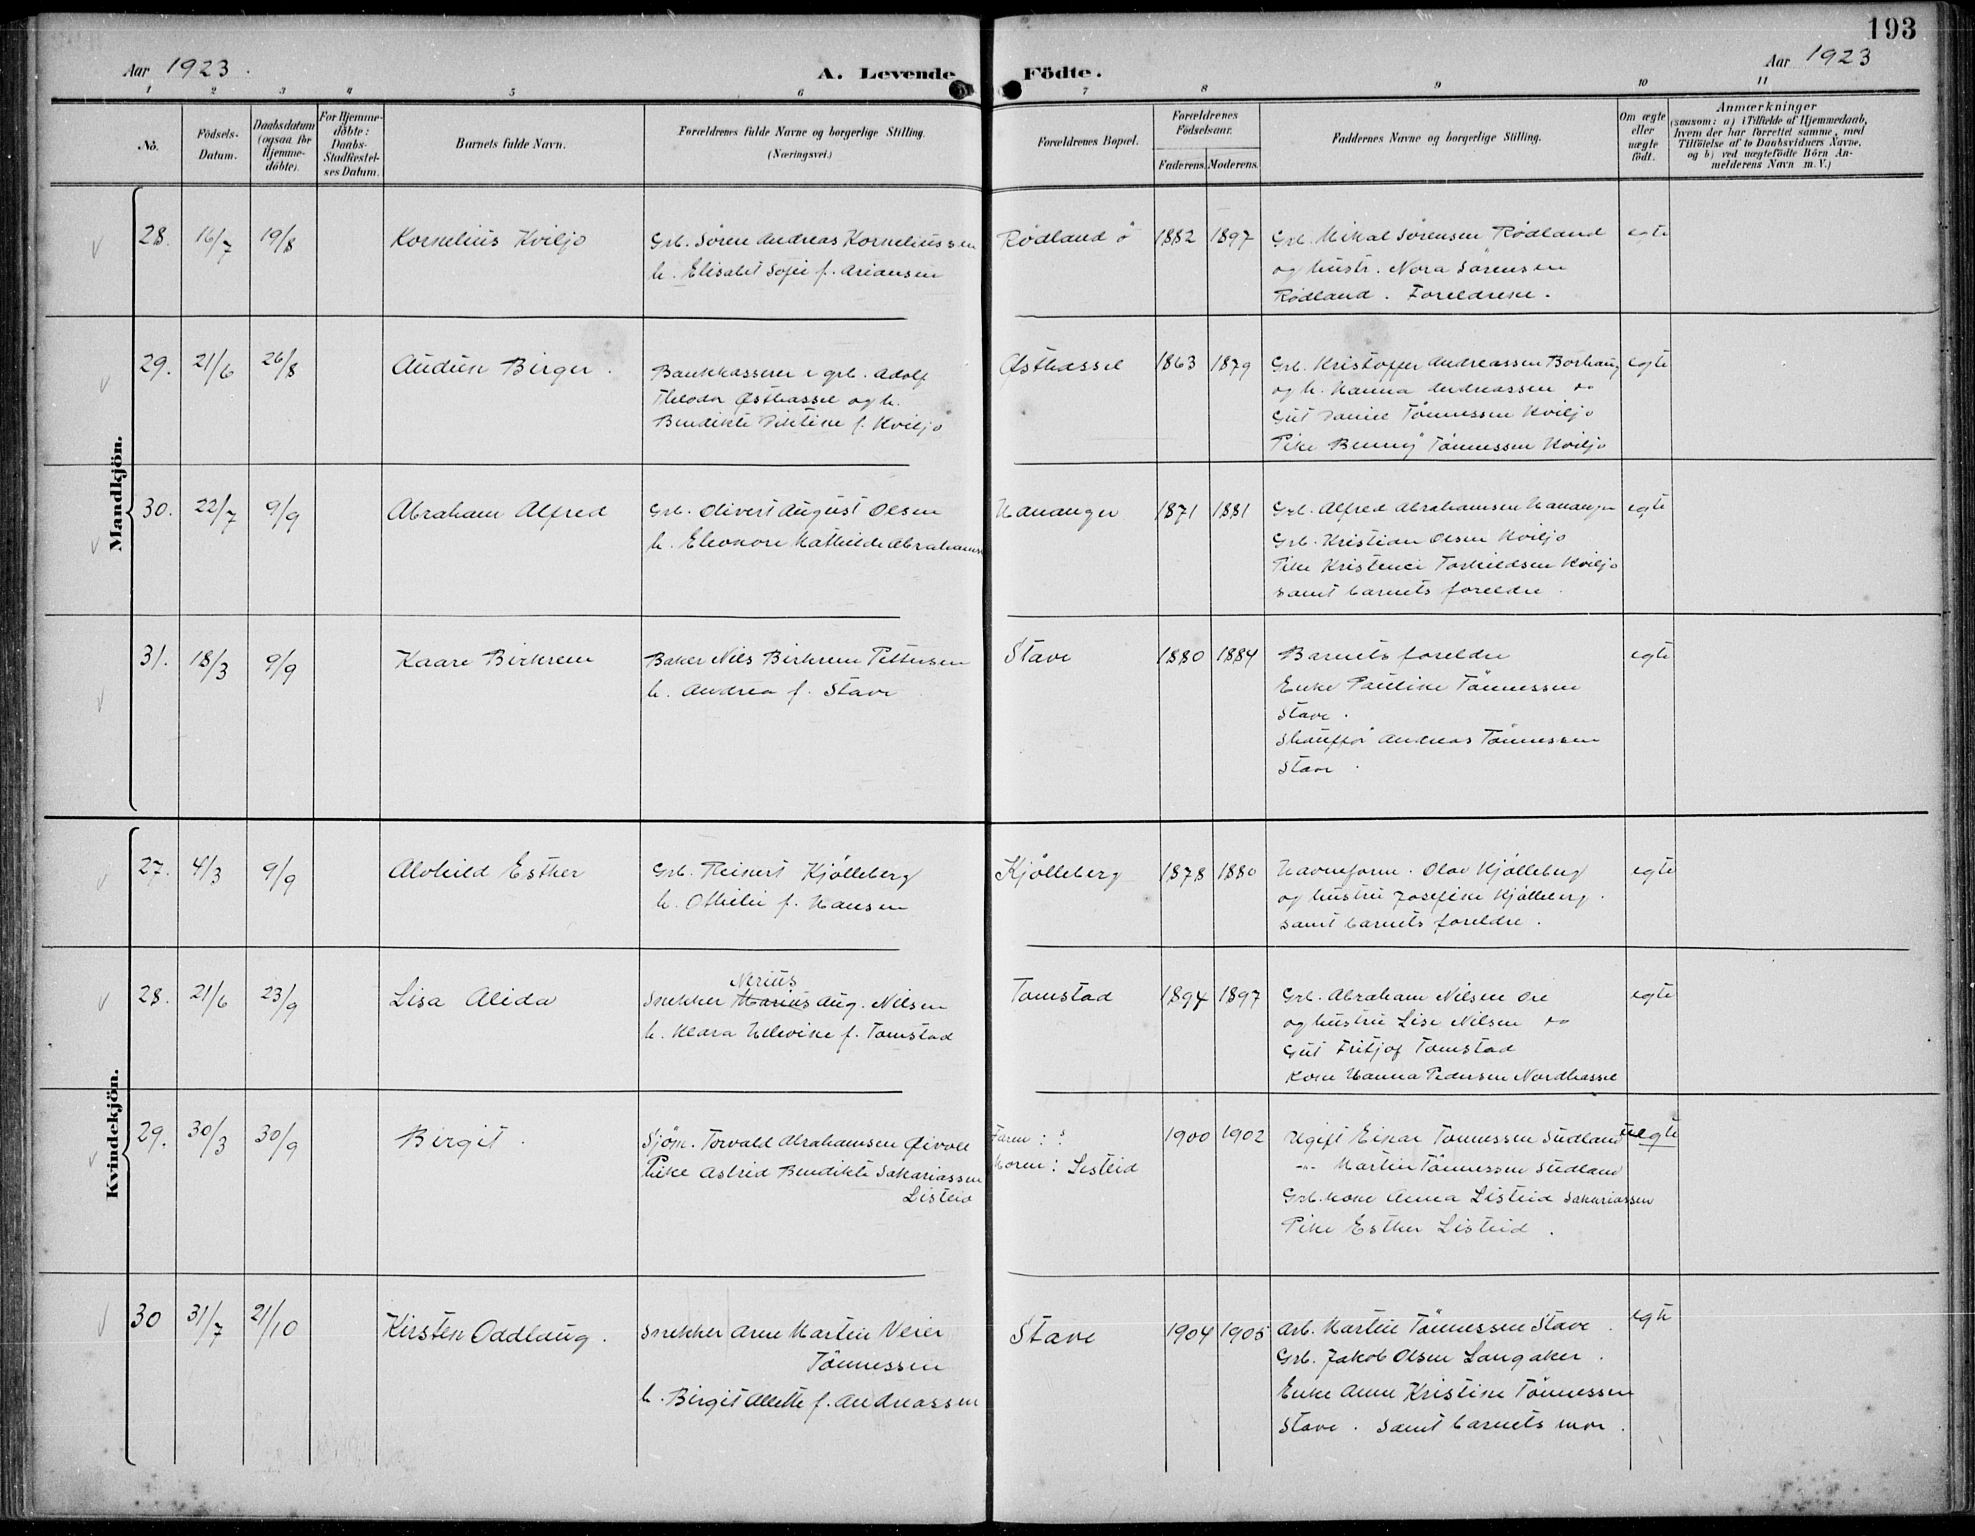 193
Aar 1923.
A. Levende Födte.
Aar 1923
1 2 3 4 5 6 7 8 9 10 11
No.
Födsels-Datum.
Daabsdatum (ogsaa for Hjemme-döbte).
For Hjemme-döbte: Daabs-Stadfæstel-ses Datum.
Barnets fulde Navn.
Forældrenes fulde Navne og borgerlige Stilling.
(Næringsvei.)
Forældrenes Bopæl.
Forældrenes Födselsaar.
Faderens. Moderens.
Faddernes Navne og borgerlige Stilling.
Om ægte eller uægte födt.
Anmærkninger
(saasom: a) i Tilfælde af Hjemmedaab,
hvem der har forrettet samme, med
Tilföielse af to Daabsvidners Navne,
og b) ved uægtefödte Börn An-
melderens Navn m. V.)
Mandkjön.
28. 16/7 19/8 Kornelius Kviljo
Grb. Søren Andreas Korneliussen
h. Elisabet Sofie f. Ariansen
Rødland ö 1882 1897
Grb. Mikal Sørensen Rødland
og hustr. Nora Sørensen
Rødland. Foreldrene.
egte
29. 21/6 26/8 Audun Birger.
Bankkasserer i grb. Adolf
Theodor Østhassel og h.
Bendikte f. Kviljo
Østhassel 1863 1879
Grb. Kristoffer Andreassen Borhaug
og h. Hanna Andreassen do
Gut Daniel Tönnessen Kviljo
Pike Benny Tönnessen Kviljo
egte
30. 22/7 9/9 Abraham Alfred
Grb. Olivert August Olsen
h. Eleonore Mathilde Abrahams
Hananger 1871 1881
Grb. Alfred Abrahamsen Hananger
Grb. Kristian Olsen Kviljo
Pike Torkildsen Kviljo
samt barnets foreldre.
egte
31. 18/3 9/9 Kaare Birkrem
Baker Nils Birkrem Pettersen
h. Andrea f. Stave
Stave 1880 1884
Barnets foreldre
Enke Pauline Tönnessen
Stave.
Shauffør Andreas Tönnessen
Stave.
egte
Kvindekjön.
27. 4/3 9/9 Alvhild Esther
Grb. Reinert Kjölleberg
h. Othilie f. Hansen
Kjölleberg 1878 1880
Havneform. Olav Kjölleberg
og hustru Josefine Kjölleberg.
samt barnets foreldre.
egte
28. 21/6 23/9 Lisa Alida
Nerius
Snekker Marius Aug. Nilsen
h. Klara Helevine f. Tomstad
Tomstad 1894 1897
Grb. Abraham Nilsen Ore
og hustru Lise Nilsen do
Gut Fritjof Tomstad
Kone Hanna Pedersen Nordhassel
egte
29. 30/3 30/9 Birgit.
Sjöm. Torvald Abrahamsen Øivoll
Pike Astrid Bendikte Sakariassen
Listeid
Faren: ?
Moren: Listeid
1900 1902
Ugift Einar Tönnessen Sudland
-"- Martin Tönnessen Sudland
Grb. kone Anna Listeid Sakariassen
Pike Esther Listeid.
uegte
30 31/7 21/10 Kirsten Oddlaug.
Snekker Arne Martin Meier
Tönnessen
h. Birgit Alette f. Andreassen
Stave 1904 1905
Arb. Martin Tönnessen Stave.
Grb. Jakob Olsen Langaker.
Enke Anne Kristine Tönnessen
Stave. samt barnets mor.
egte